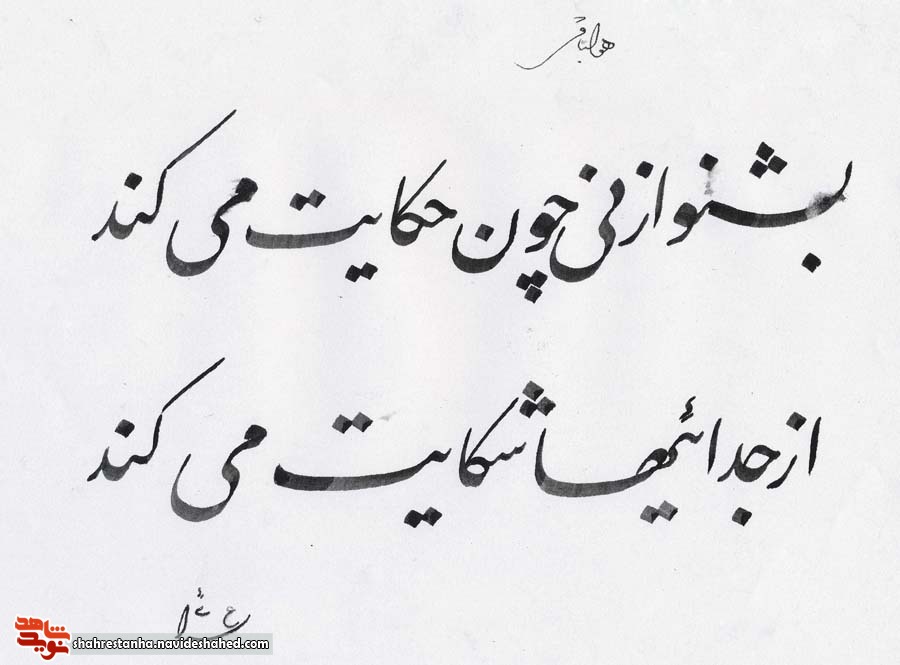 هو الباقی
بشنو از نی چون حکایت می کند
از جدائیها شکایت می کند
نوید شاهد
shahrestanha.navideshahed.com